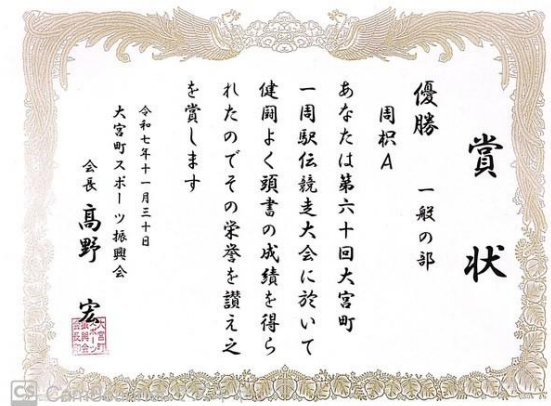 賞状
優勝 一般の部
周枳A
あなたは第六十回大宮町
一周駅伝競走大会に於いて
健闘よく頭書の成績を得ら
れたのでその栄誉を讃え之
を賞します
令和七年十一月三十日
大宮町スポーツ振興会
会長 髙野 宏
大宮町
スポーツ
振興会
会長印
CS CamScanner